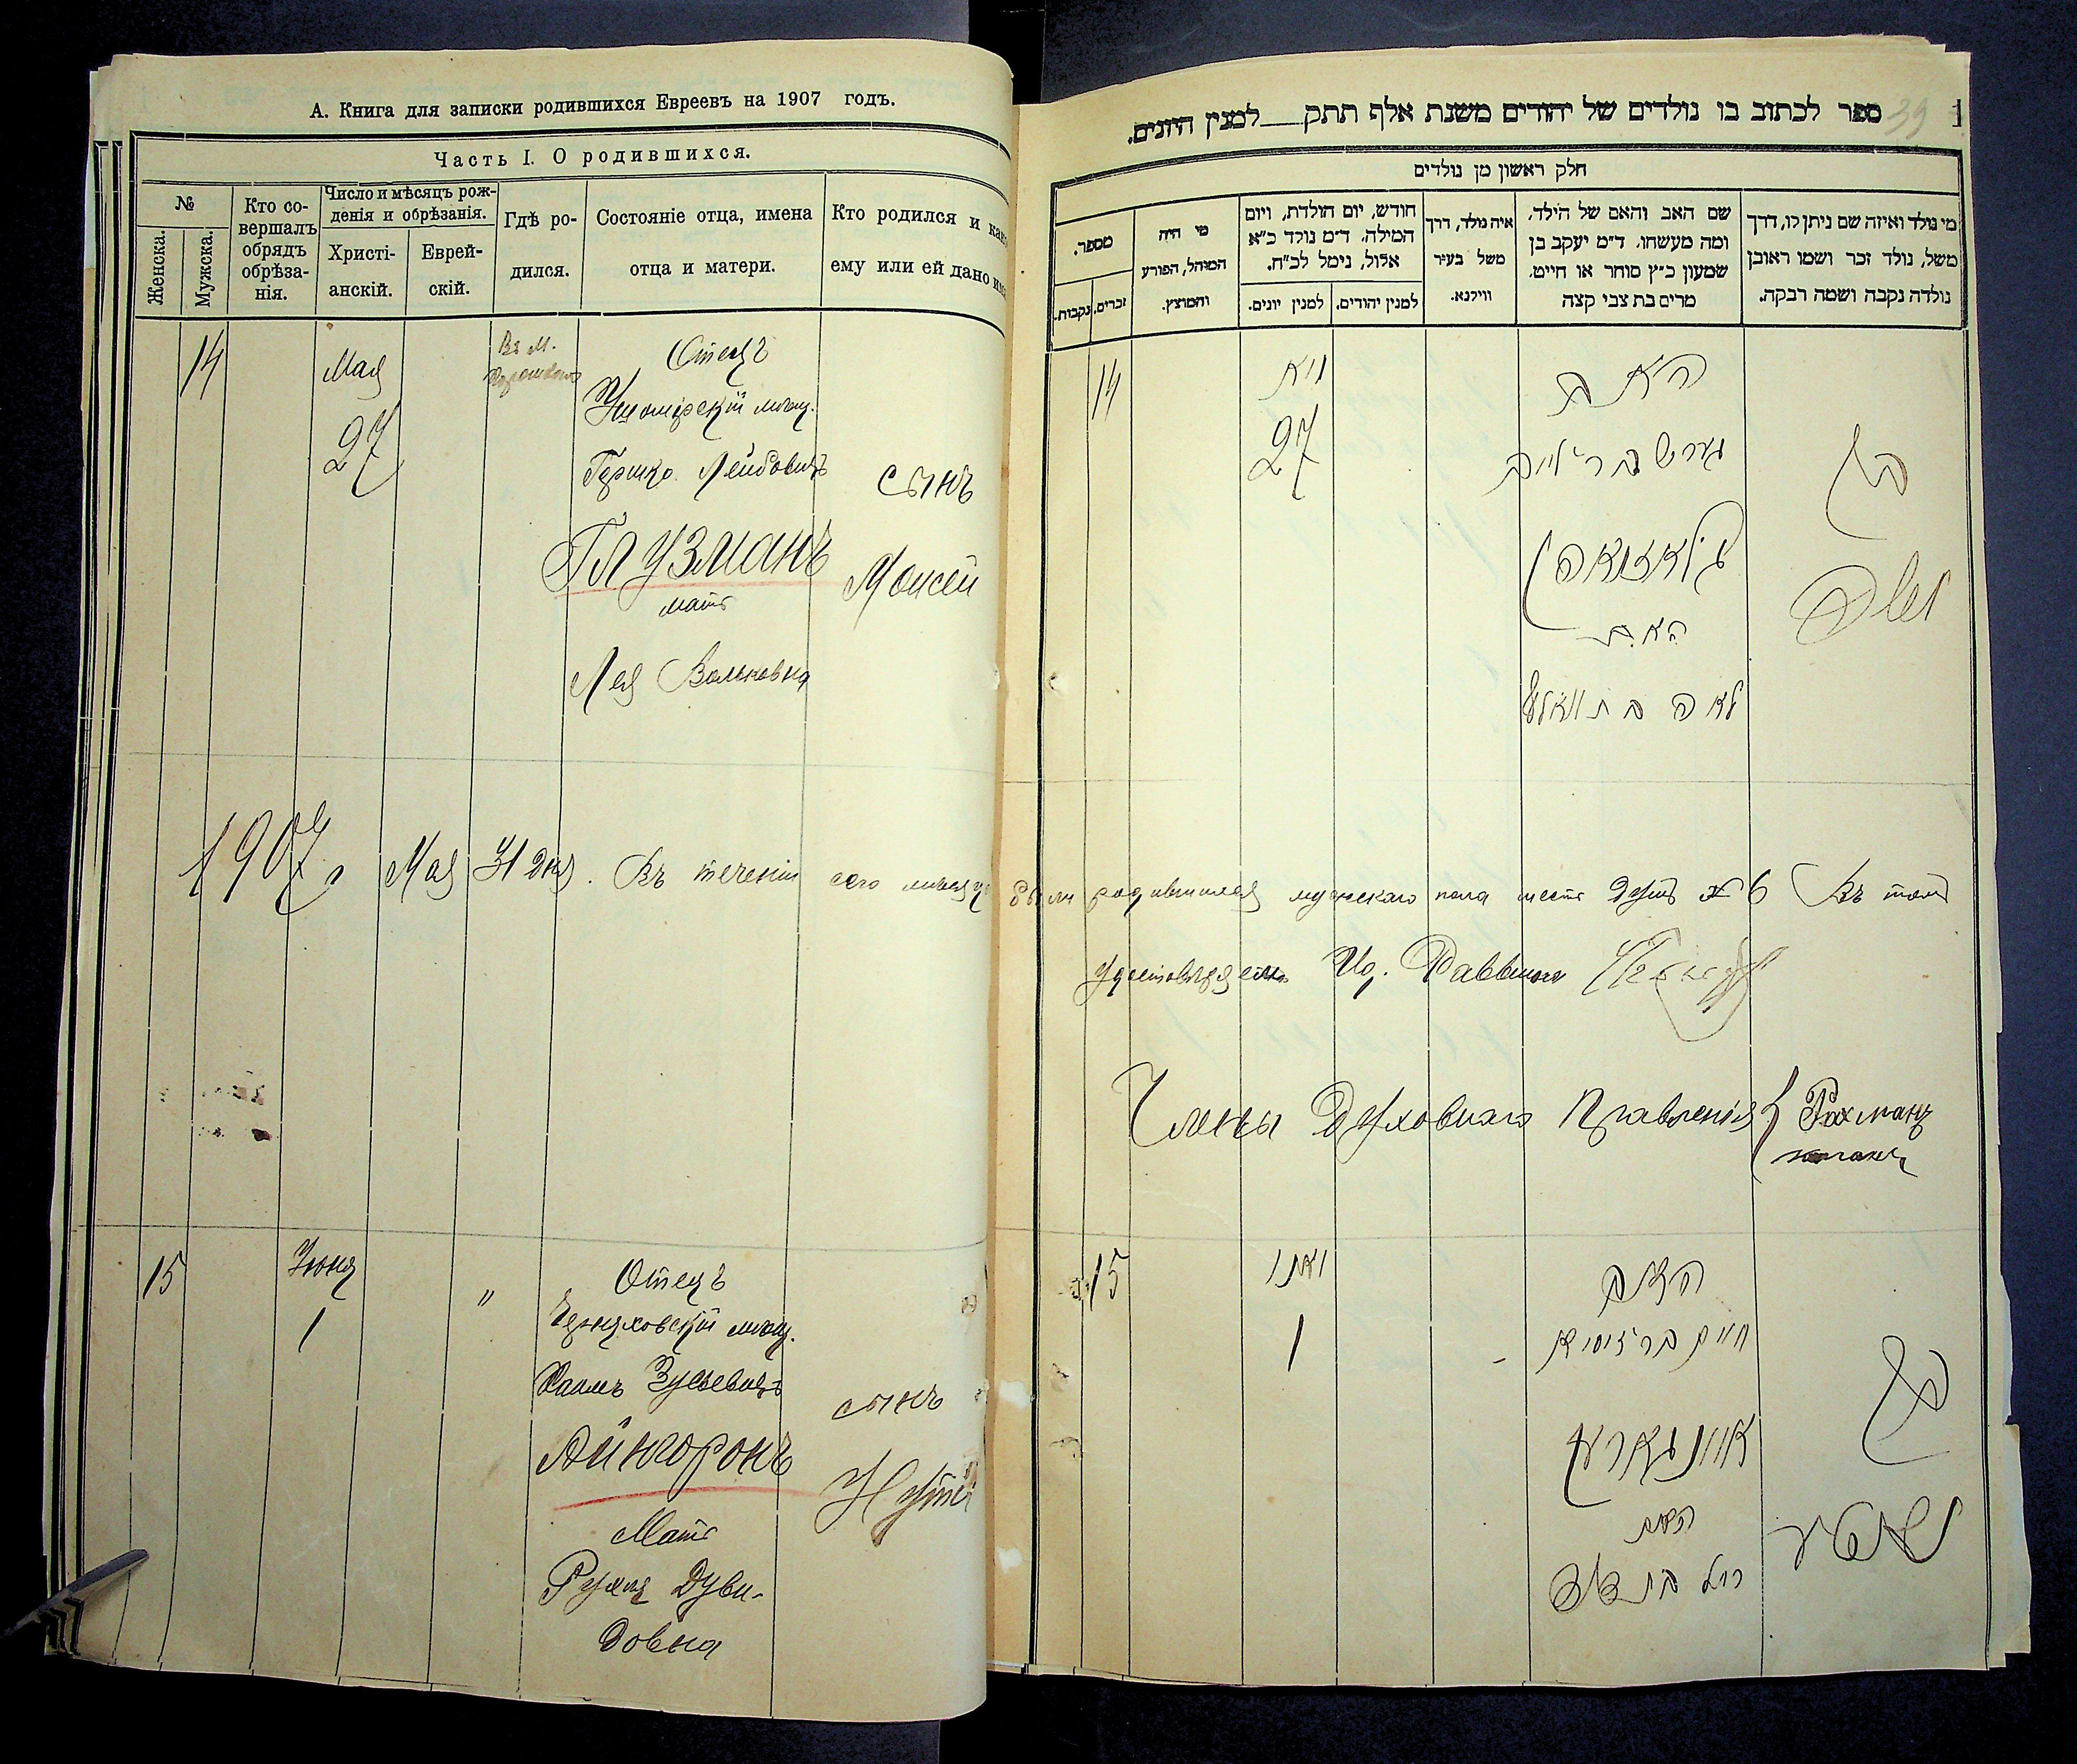 А. Книга для записки родившихся Евреевъ на 1907 годъ.
Часть I. О родившихся.
№
Женска.
Мужска.
Кто со-
вершалъ
обрядъ
обрѣза-
нія.
Число и мѣсяцъ рож-
денія и обрѣзанія.
Христі-
анскій.
Еврей-
скій.
Гдѣ ро-
дился.
Состояніе отца, имена
отца и матери.
Кто родился и как
ему или ей дано им
14
Мая
27
Въ м.
Отецъ
Ушомирскій мѣщ.
Гершко Лейбовичъ
Глузманъ
мать
Лея Вольковна
сынъ
Моисей
1907 г. Мая 31 дня. Въ теченіи сего мѣсяца
15
Іюня
1
"
Отецъ
Черняховскій мѣщ.
Хаимъ Зусьевичъ
Айнгорнъ
Мать
Рухля Дуви-
довна
сынъ
Нутэ
39
1
ספר לכתוב בו נולדים של יהודים משנת אלף תתק למנין היונים.
חלק ראשון מן נולדים
מי נולד ואיזה שם ניתן לו, דרך
משל, נולד זכר ושמו ראובן
נולדה נקבה ושמה רבקה.
שם האב והאם של הילד,
ומה מעשהו. ד״מ יעקב בן
שמעון כ״ץ סוחר או חייט.
מרים בת צבי קצה
איה נולד, דרך
משל בעיר
ווילנא.
חודש, יום הולדת, ויום
המילה. ד״מ נולד כ״א
אלול, נימל לכ״ח.
למנין יהודים.
למנין יונים.
מי היה
המוהל, הפורע
והמוצץ.
מספר.
זכרים.
נקבות.
14
מאי
27
האב
גערש בר לייב
גלאזמאן
האם
לאה בת וואלף
בן
משה
были родившихся мужскаго пола шесть душъ № 6 Въ томъ
удостовѣряемъ Ид. Раввина
Члены Духовнаго Правленія Рахманъ
15
יאני
1
האב
חיים בר זוסיא
איינגארן
האם
רחל בת דוד
בן
נאטע